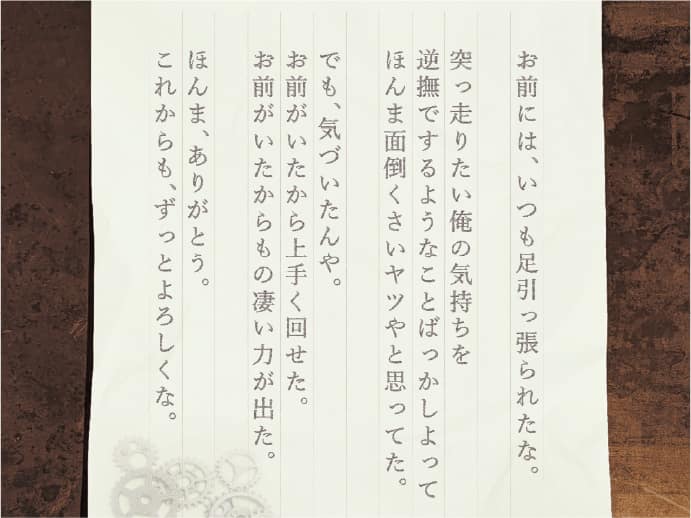 お前には、いつも足引っ張られたな。
突っ走りたい俺の気持ちを
逆撫でするようなことばっかしよって
ほんま面倒くさいヤツやと思ってた。
でも、気づいたんや。
お前がいたから上手く回せた。
お前がいたからもの凄い力が出た。
ほんま、ありがとう。
これからも、ずっとよろしくな。